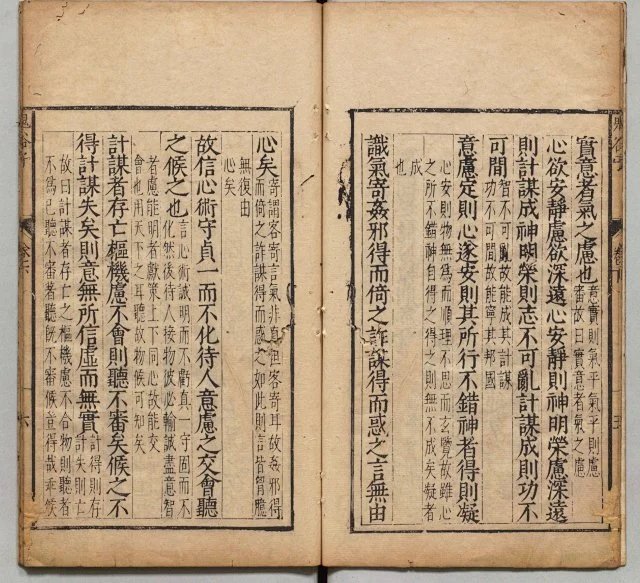 實意者氣之慮也
意實則氣平氣平則慮
審故曰實意者氣之慮
心欲安靜慮欲深遠心安靜則神明榮慮深遠
則計謀成神明榮則志不可亂計謀成則功不
可間
智不可亂故能成其計謀
功不可間故能寧其邦國
意慮定則心遂安則其所行不錯神者得則凝
心安則物無為而順理不思而玄覽故雖心
之所不錯神自得之得之則無不成矣凝者
成
也
識氣寄姦邪得而倚之詐謀得而惑之言無由
心矣
寄謂客寄言氣非真但客寄耳故姦邪得
而倚之詐謀得而惑之如此則言皆胷臆
無復由
心矣
故信心術守貞一而不化待人意慮之交會聽
之候之也
言心術誠明而不虧真一守固而不
化然後待人接物彼必輸誠盡意智
者慮能明者獻策上下同心故能交
會也用天下之耳聽故物候可知矣
計謀者存亡樞機慮不會則聽不審矣候之不
得計謀失矣則意無所信虛而無實
計得則存
計失則亡
故曰計謀者存亡之樞機慮不合物則聽者
不為己聽不審著聽既不審候豈得哉乖候